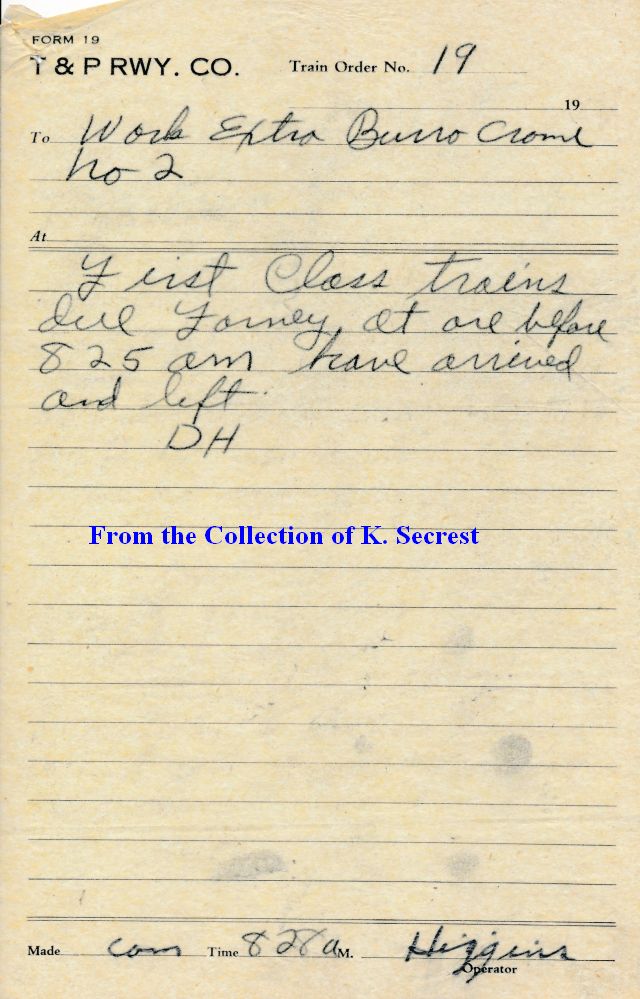 FORM 19
T & P RWY. CO. Train Order No. 19
19
To Work Extra Burro Crane
No 2
At
First Class trains
due Forney at or before
825 am have arrived
and left
DH
From the Collection of K. Secrest
Made com Time 828 a M. Higgins
Operator